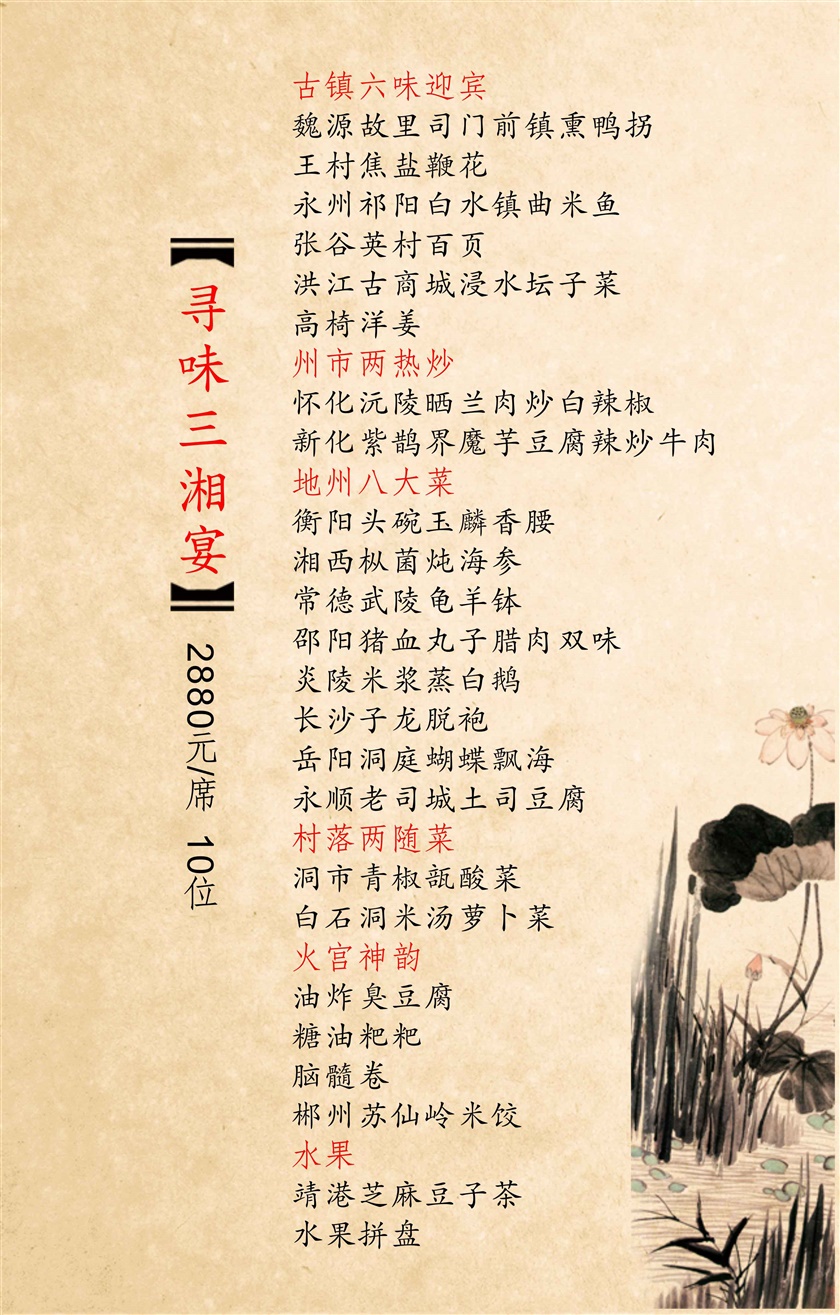 【寻味三湘宴】
2880元/席 10位
古镇六味迎宾
魏源故里司门前镇熏鸭拐
王村焦盐鞭花
永州祁阳白水镇曲米鱼
张谷英村百页
洪江古商城浸水坛子菜
高椅洋姜
州市两热炒
怀化沅陵晒兰肉炒白辣椒
新化紫鹊界魔芋豆腐辣炒牛肉
地州八大菜
衡阳头碗玉麟香腰
湘西枞菌炖海参
常德武陵龟羊钵
邵阳猪血丸子腊肉双味
炎陵米浆蒸白鹅
长沙子龙脱袍
岳阳洞庭蝴蝶飘海
永顺老司城土司豆腐
村落两随菜
洞市青椒瓿酸菜
白石洞米汤萝卜菜
火宫神韵
油炸臭豆腐
糖油粑粑
脑髓卷
郴州苏仙岭米饺
水果
靖港芝麻豆子茶
水果拼盘